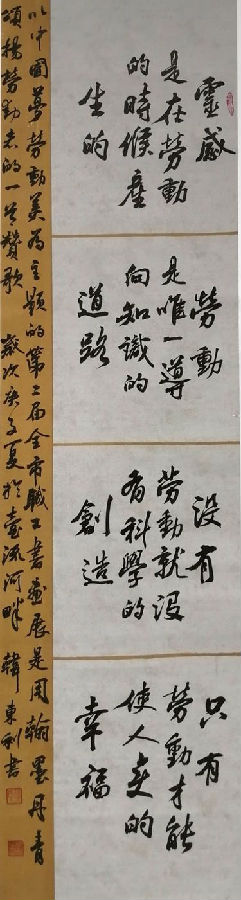 靈感
是在勞動
的時候產
生的
勞動
是唯一導
向知識的
道路
沒有
勞動就沒
有科學的
創造
只有
勞動才能
使人變的
幸福
以中國夢勞動美為主題的第二届全市職工書畫展是用翰墨丹青
頌揚勞動者的一首贊歌 歲次庚子夏於臺流河畔 韓東利書